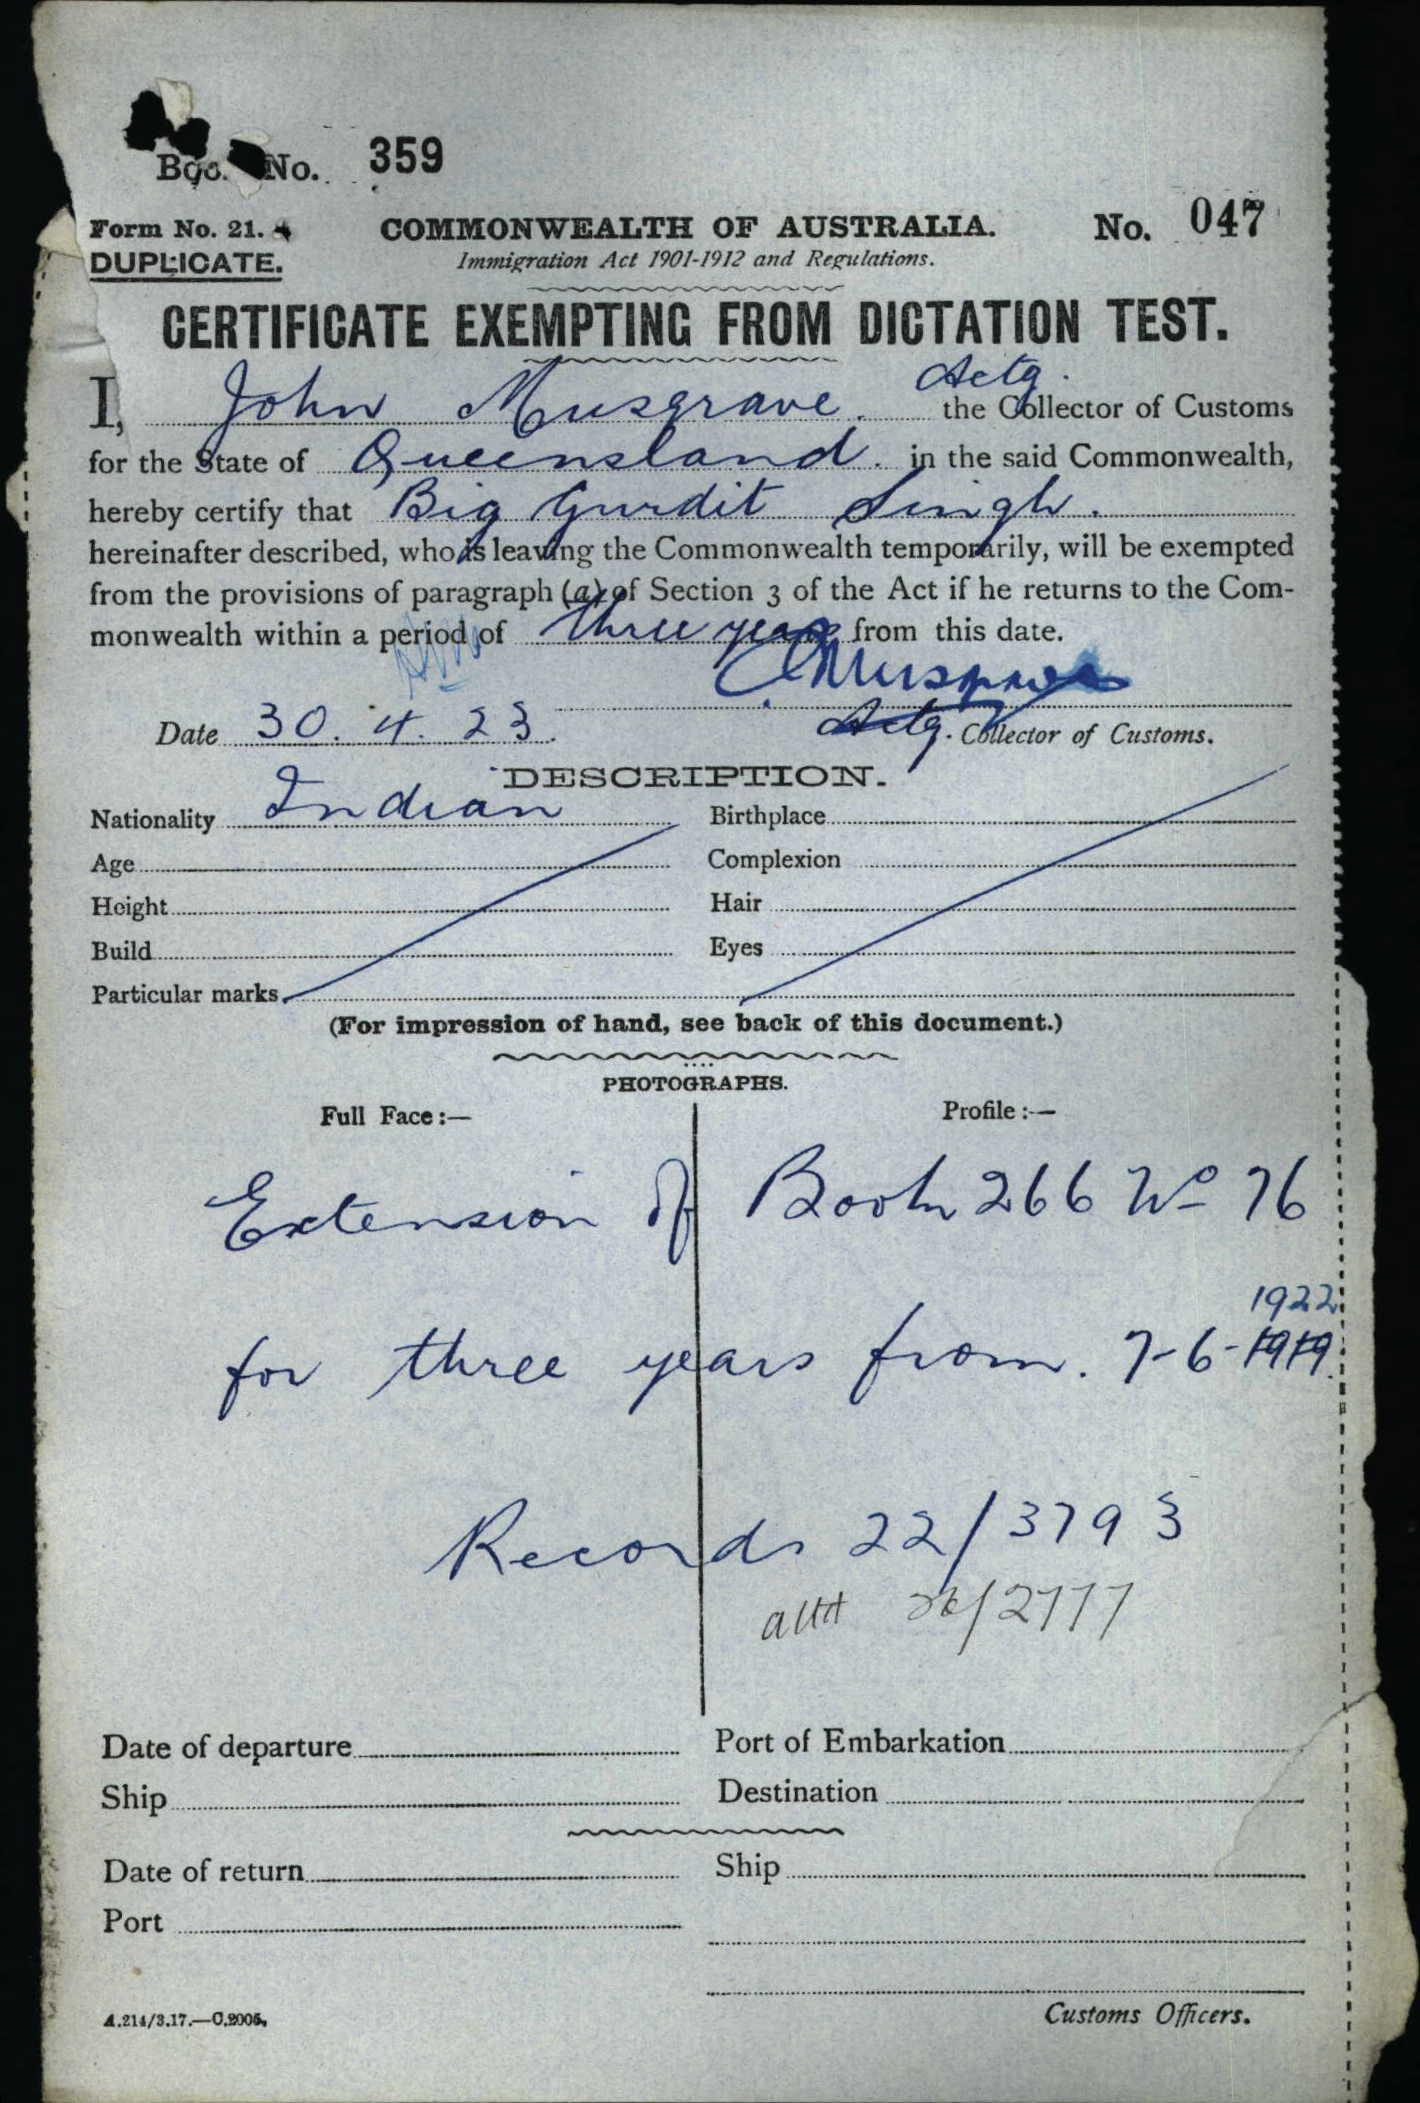 Boo. No. 359
Form No. 21. COMMONWEALTH OF AUSTRALIA. No. 047
DUPLICATE. Immigration Act 1901-1912 and Regulations.
CERTIFICATE EXEMPTING FROM DICTATION TEST.
Actg.
I, John Musgrave. the Collector of Customs
for the State of Queensland. in the said Commonwealth,
hereby certify that Big Gurdit Singh.
hereinafter described, who is leaving the Commonwealth temporarily, will be exempted
from the provisions of paragraph (a) of Section 3 of the Act if he returns to the Com-
monwealth within a period of three years from this date.
Musgrave
Date 30. 4. 23. Actg. Collector of Customs.
DESCRIPTION.
Nationality Indian Birthplace
Age Complexion
Height Hair
Build Eyes
Particular marks
(For impression of hand, see back of this document.)
PHOTOGRAPHS.
Full Face:— Profile:—
Extension of Book 266 No 76
1922
for three years from. 7-6-1919.
Records 22/3793
/2777
Date of departure Port of Embarkation
Ship Destination
Date of return Ship
Port
A.214/3.17.—C.2005. Customs Officers.